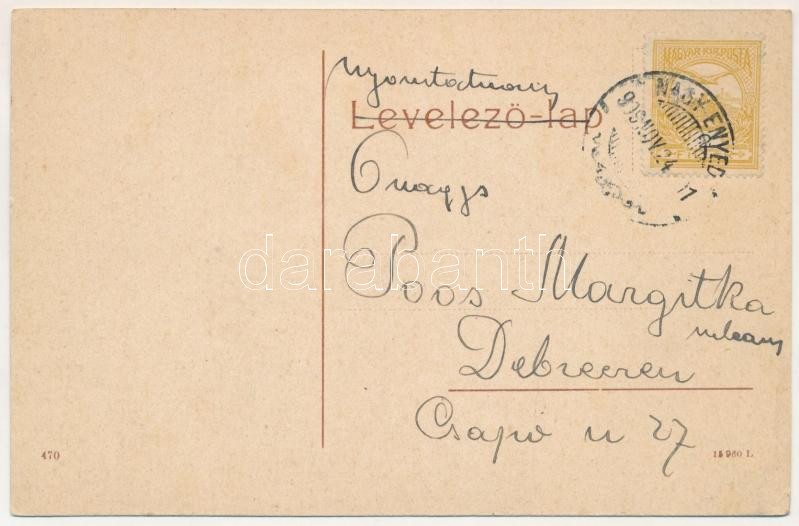 nyomtatvány
Levelező-lap
MAGYAR KIR. POSTA
NAGY-ENYED
909 NOV. 24
Önagys
Poós Margitka
Debreczen
Csapó u 27
darabanth
470
15960 L